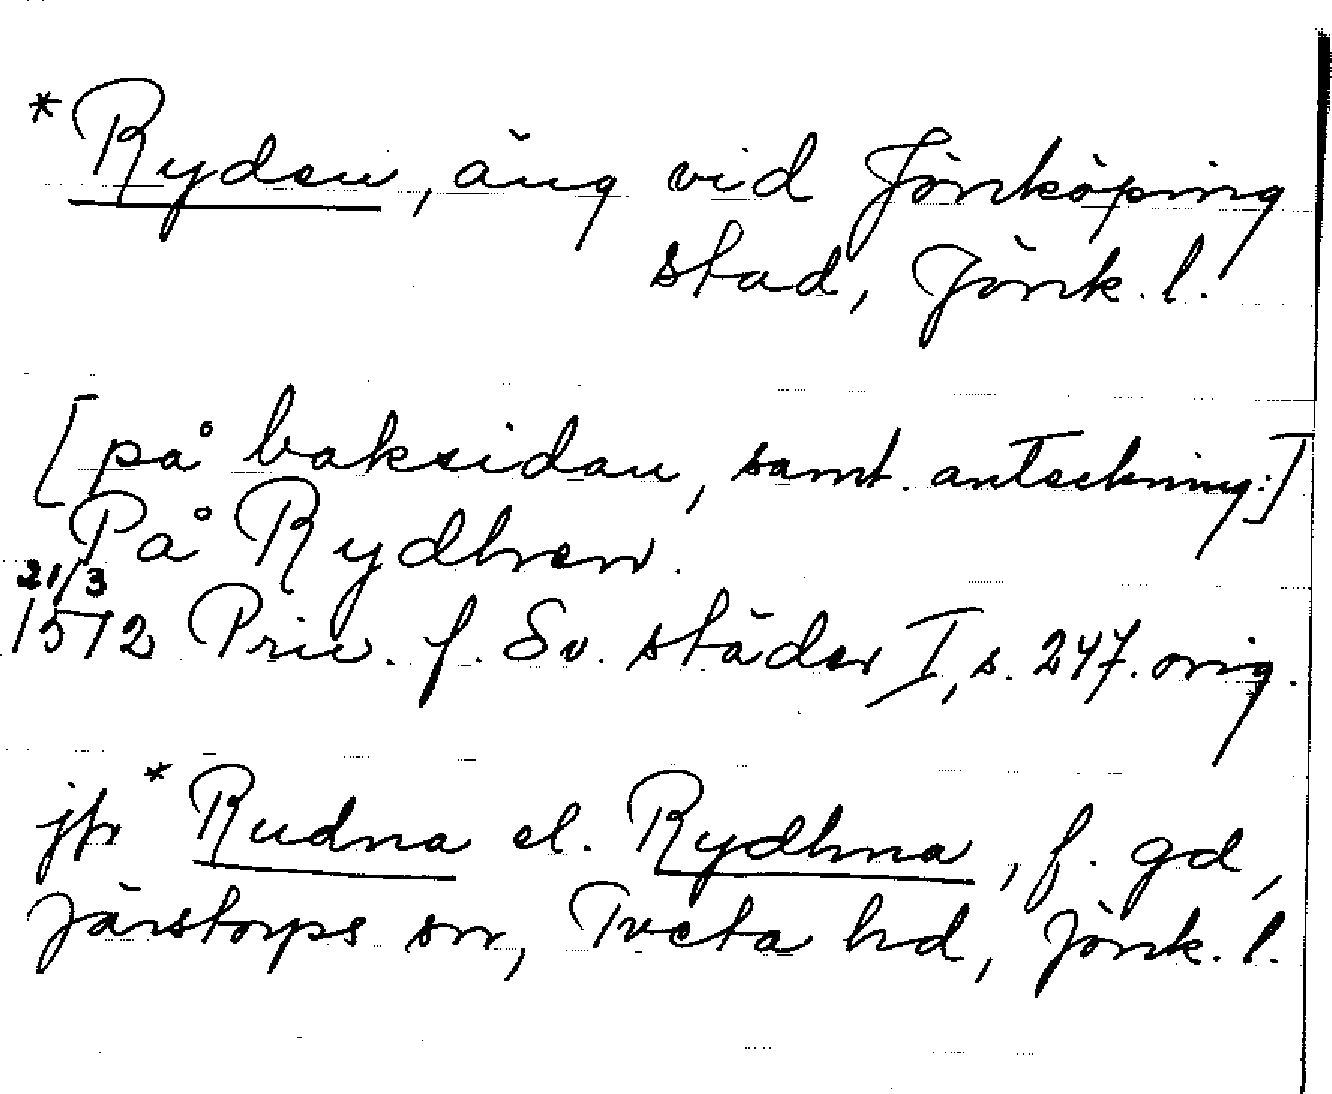 *Ryden, äng vid Jönköping
stad, Jönk. l.
[på baksidan, samt. anteckning:]
På Rydhen.
21/3
1572 Priv. f. Sv. städer I, s. 247. orig.
jfr *Rudna el. Rydhna, f. gd,
Järstorps sn, Tveta hd, Jönk. l.